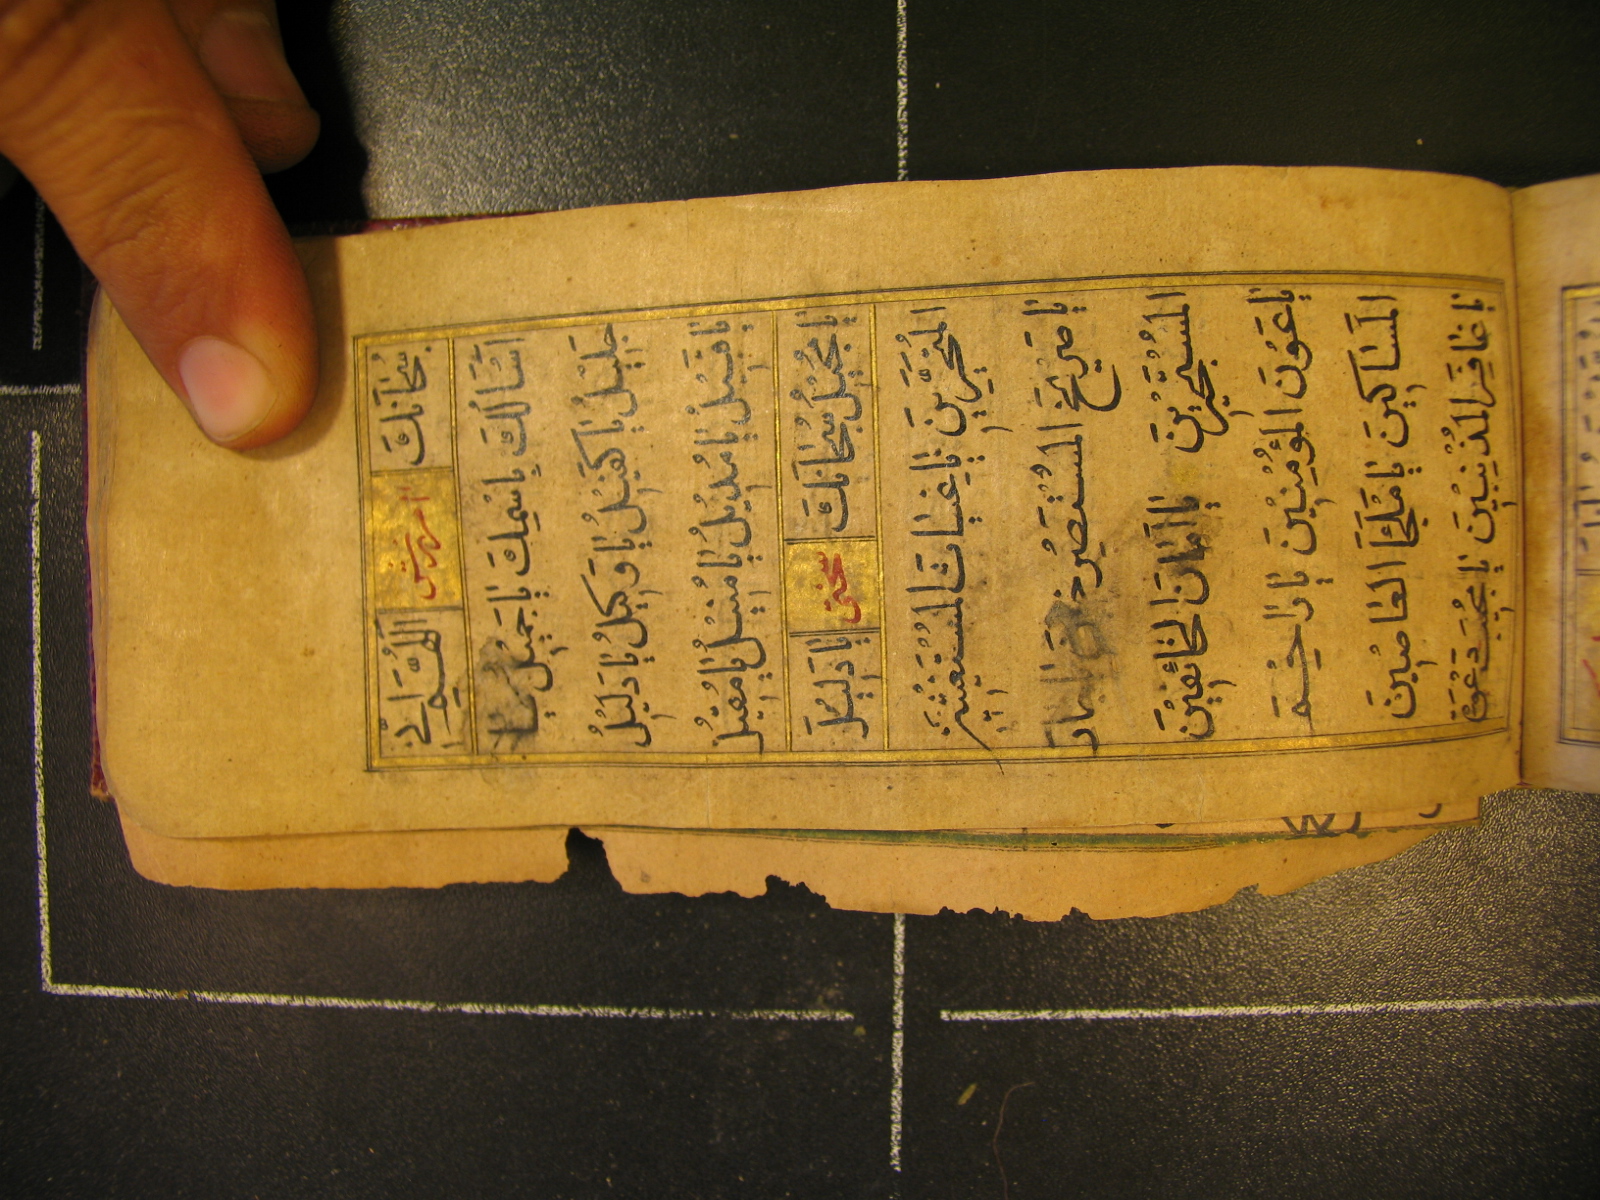 سُبْحَانَكَ اَللّٰهُمَّ اِنّٖي
اَسَالُكَ بِاسْمِكَ يَا جَمِيلُ يَا
جَلِيْلُ يَا كَفِيْلُ يَا وَكِيْلُ يَا دَلِيْلُ
يَا قَبِيْلُ يَا مُدِيْلُ يَا مُنِيْلُ يَا مُقِيْلُ
يَا مُحِيْلُ سُبْحَانَكَ سختی يَا دَلِيْلَ
الْمُتَحَيِّرِيْنَ يَا غِيَاثَ الْمُسْتَغِيْثِيْنَ
يَا صَرِيْخَ الْمُسْتَصْرِخِيْنَ يَا جَارَ
الْمُسْتَجِيْرِيْنَ يَا اَمَانَ الْخَائِفِيْنَ
يَا عَوْنَ الْمُؤْمِنِيْنَ يَا رَاحِمَ
الْمَسَاكِيْنَ يَا مَلْجَأَ الْعَاصِيْنَ
يَا غَافِرَ الْمُذْنِبِيْنَ يَا مُجِيْبَ دَعْوَةِ